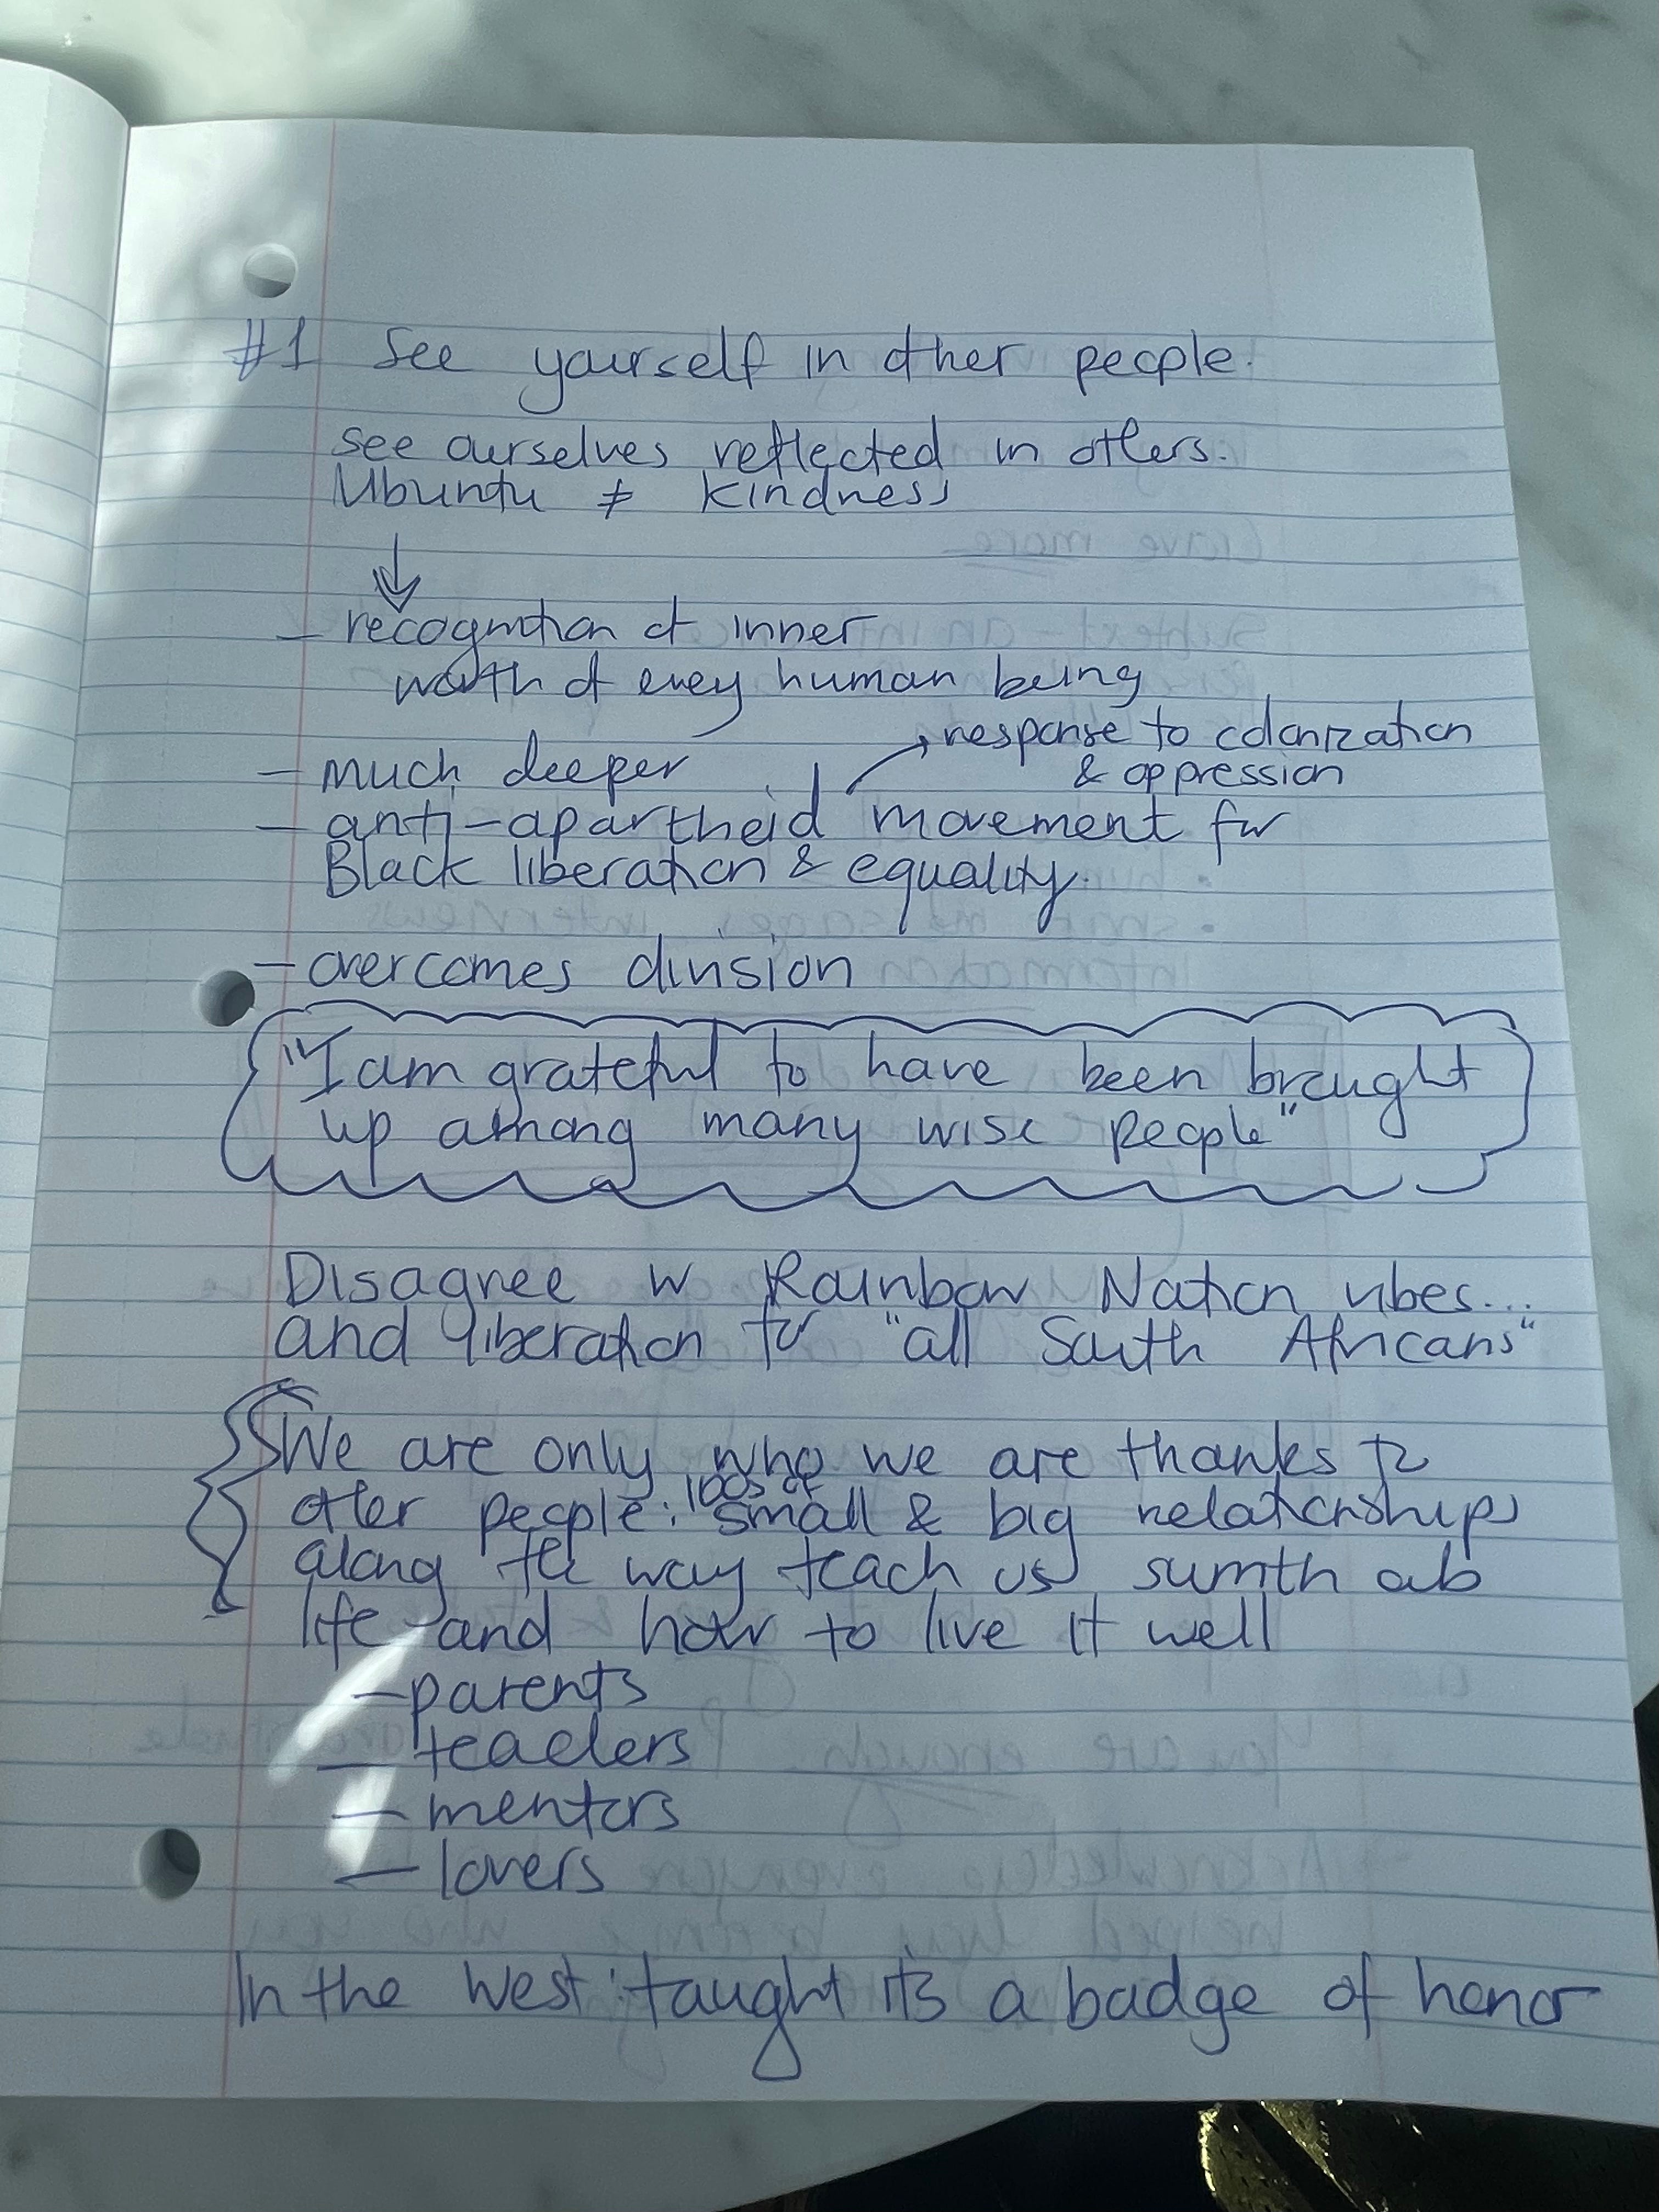 #1 See yourself in other people.
see ourselves reflected in others.
Ubuntu ≠ kindness
↓
- recognition of inner
worth of every human being
- much deeper
→ response to colonization
& oppression
- anti-apartheid movement for
Black liberation & equality.
- overcomes division
"I am grateful to have been brought
up among many wise people"
Disagree w Rainbow Nation vibes...
and liberation for "all South Africans"
We are only who we are thanks to
other people: 100s of small & big relationships
along the way teach us sumth ab
life and how to live it well
- parents
- teachers
- mentors
- lovers
In the West: taught it's a badge of honor